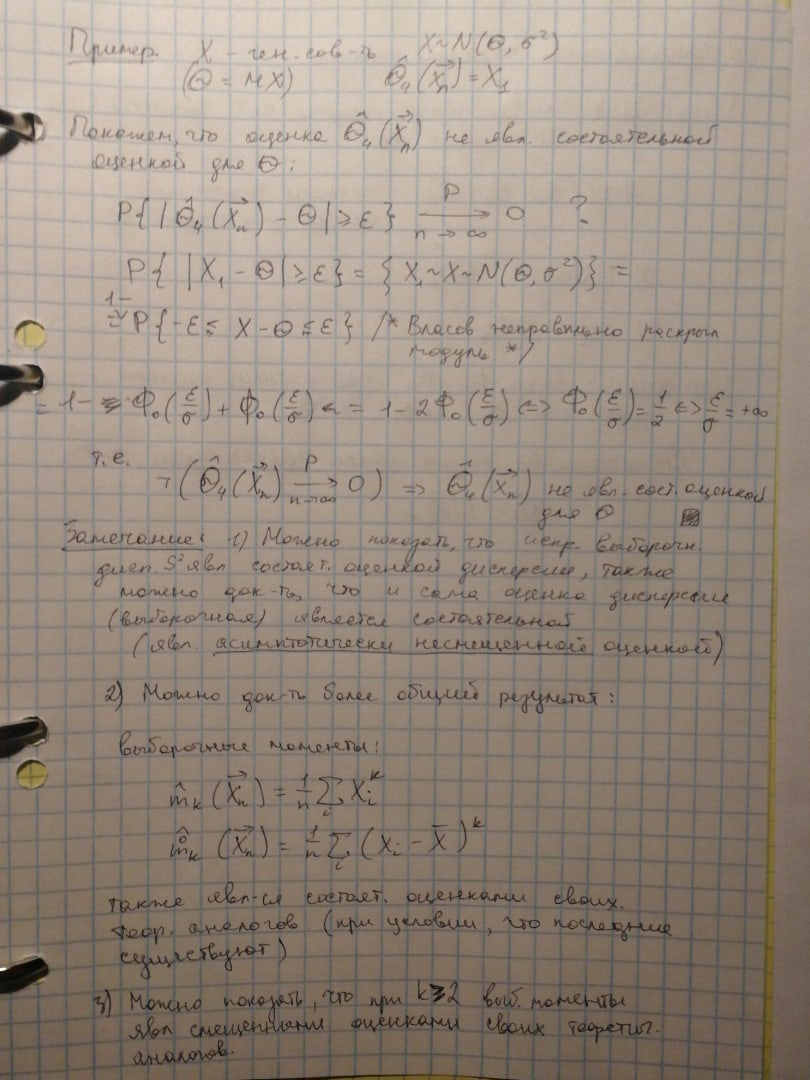 Пример. X - ген. сов-ть X ~ N(Θ, σ²)
(Θ = MX) Θ̂₄(X⃗ₙ) = X₁
Покажем, что оценка Θ̂₄(X⃗ₙ) не явл. состоятельной
оценкой для Θ:
P{|Θ̂₄(X⃗ₙ) - Θ| ≥ ε} —P→ n→∞ 0 ?
P{|X₁ - Θ| ≥ ε} = {X₁ ~ X ~ N(Θ, σ²)} =
= 1 - P{-ε ≤ X - Θ ≤ ε} /* Власов неправильно раскрыл
модуль */
= 1 - Φ₀(ε/σ) + Φ₀(ε/σ) = 1 - 2Φ₀(ε/σ) <=> Φ₀(ε/σ) = 1/2 <=> ε/σ = +∞
т.е.
¬(Θ̂₄(X⃗ₙ) —P→ n→∞ 0) => Θ̂₄(X⃗ₙ) не явл. сост. оценкой
для Θ
Замечание: 1) Можно показать, что испр. выборочн.
дисп. S² явл состоят. оценкой дисперсии, также
можно док-ть, что и сама оценка дисперсии
(выборочная) является состоятельной
(явл. асимптотически несмещенной оценкой)
2) Можно док-ть более общий результат:
выборочные моменты:
m̂ₖ(X⃗ₙ) = 1/n Σᵢ Xᵢᵏ
m̂̊ₖ(X⃗ₙ) = 1/n Σᵢ (Xᵢ - X̄)ᵏ
также явл-ся состоят. оценками своих.
теор. аналогов (при условии, что последние
существуют)
3) Можно показать, что при k ≥ 2 выб. моменты
явл смещенными оценками своих теоретич.
аналогов.